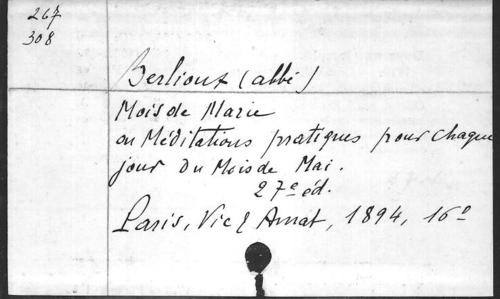 267
308
Berlioux (abbé)
Mois de Marie
ou Méditations pratiques pour chaque
jour du Mois de Mai.
27e éd.
Paris, Vic & Amat, 1894, 16º